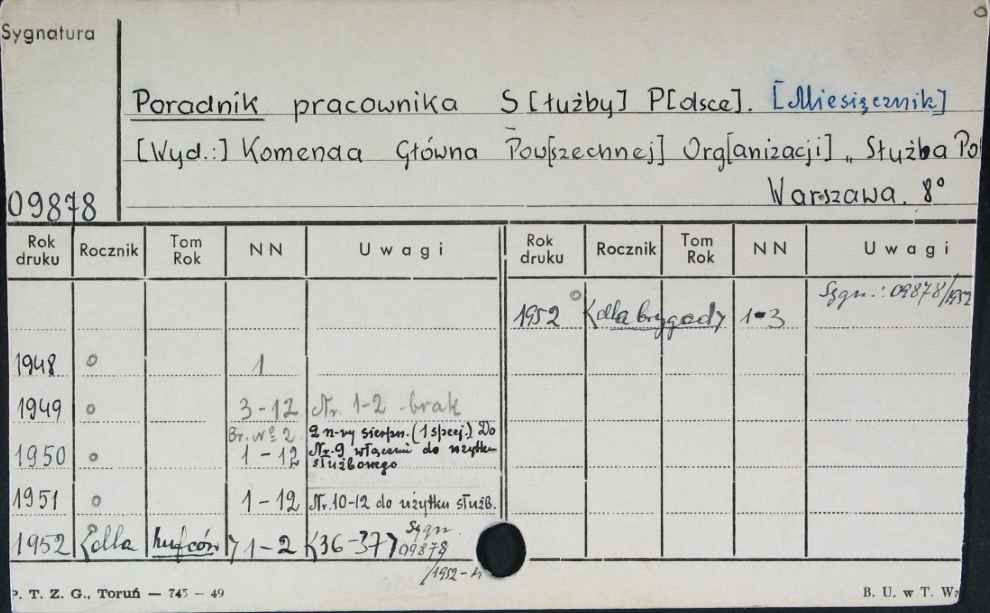 Sygnatura
Poradnik pracownika S[łużby] P[olsce]. [Miesięcznik]
[Wyd.:] Komenda Główna Pow[szechnej] Org[anizacji] „Służba Po
09878 Warszawa. 8°
Rok druku Rocznik Tom Rok NN Uwagi Rok druku Rocznik Tom Rok NN Uwagi
Sygn.: 09878/1952
1952 dla brygady 1-3
1948 1
1949 3-12 Nr. 1-2 brak
Br. Nº 2. 2 n-ry sierpn. (1 specj.) Do
1950 1-12 Nr. 9 włącznie do użytku
służbowego
1951 1-12 Nr. 10-12 do użytku służb.
1952 [dla hufców] 1-2 [36-37] Sygn.
09878
/1952-h
P. T. Z. G., Toruń — 745 - 49 B. U. w T. W